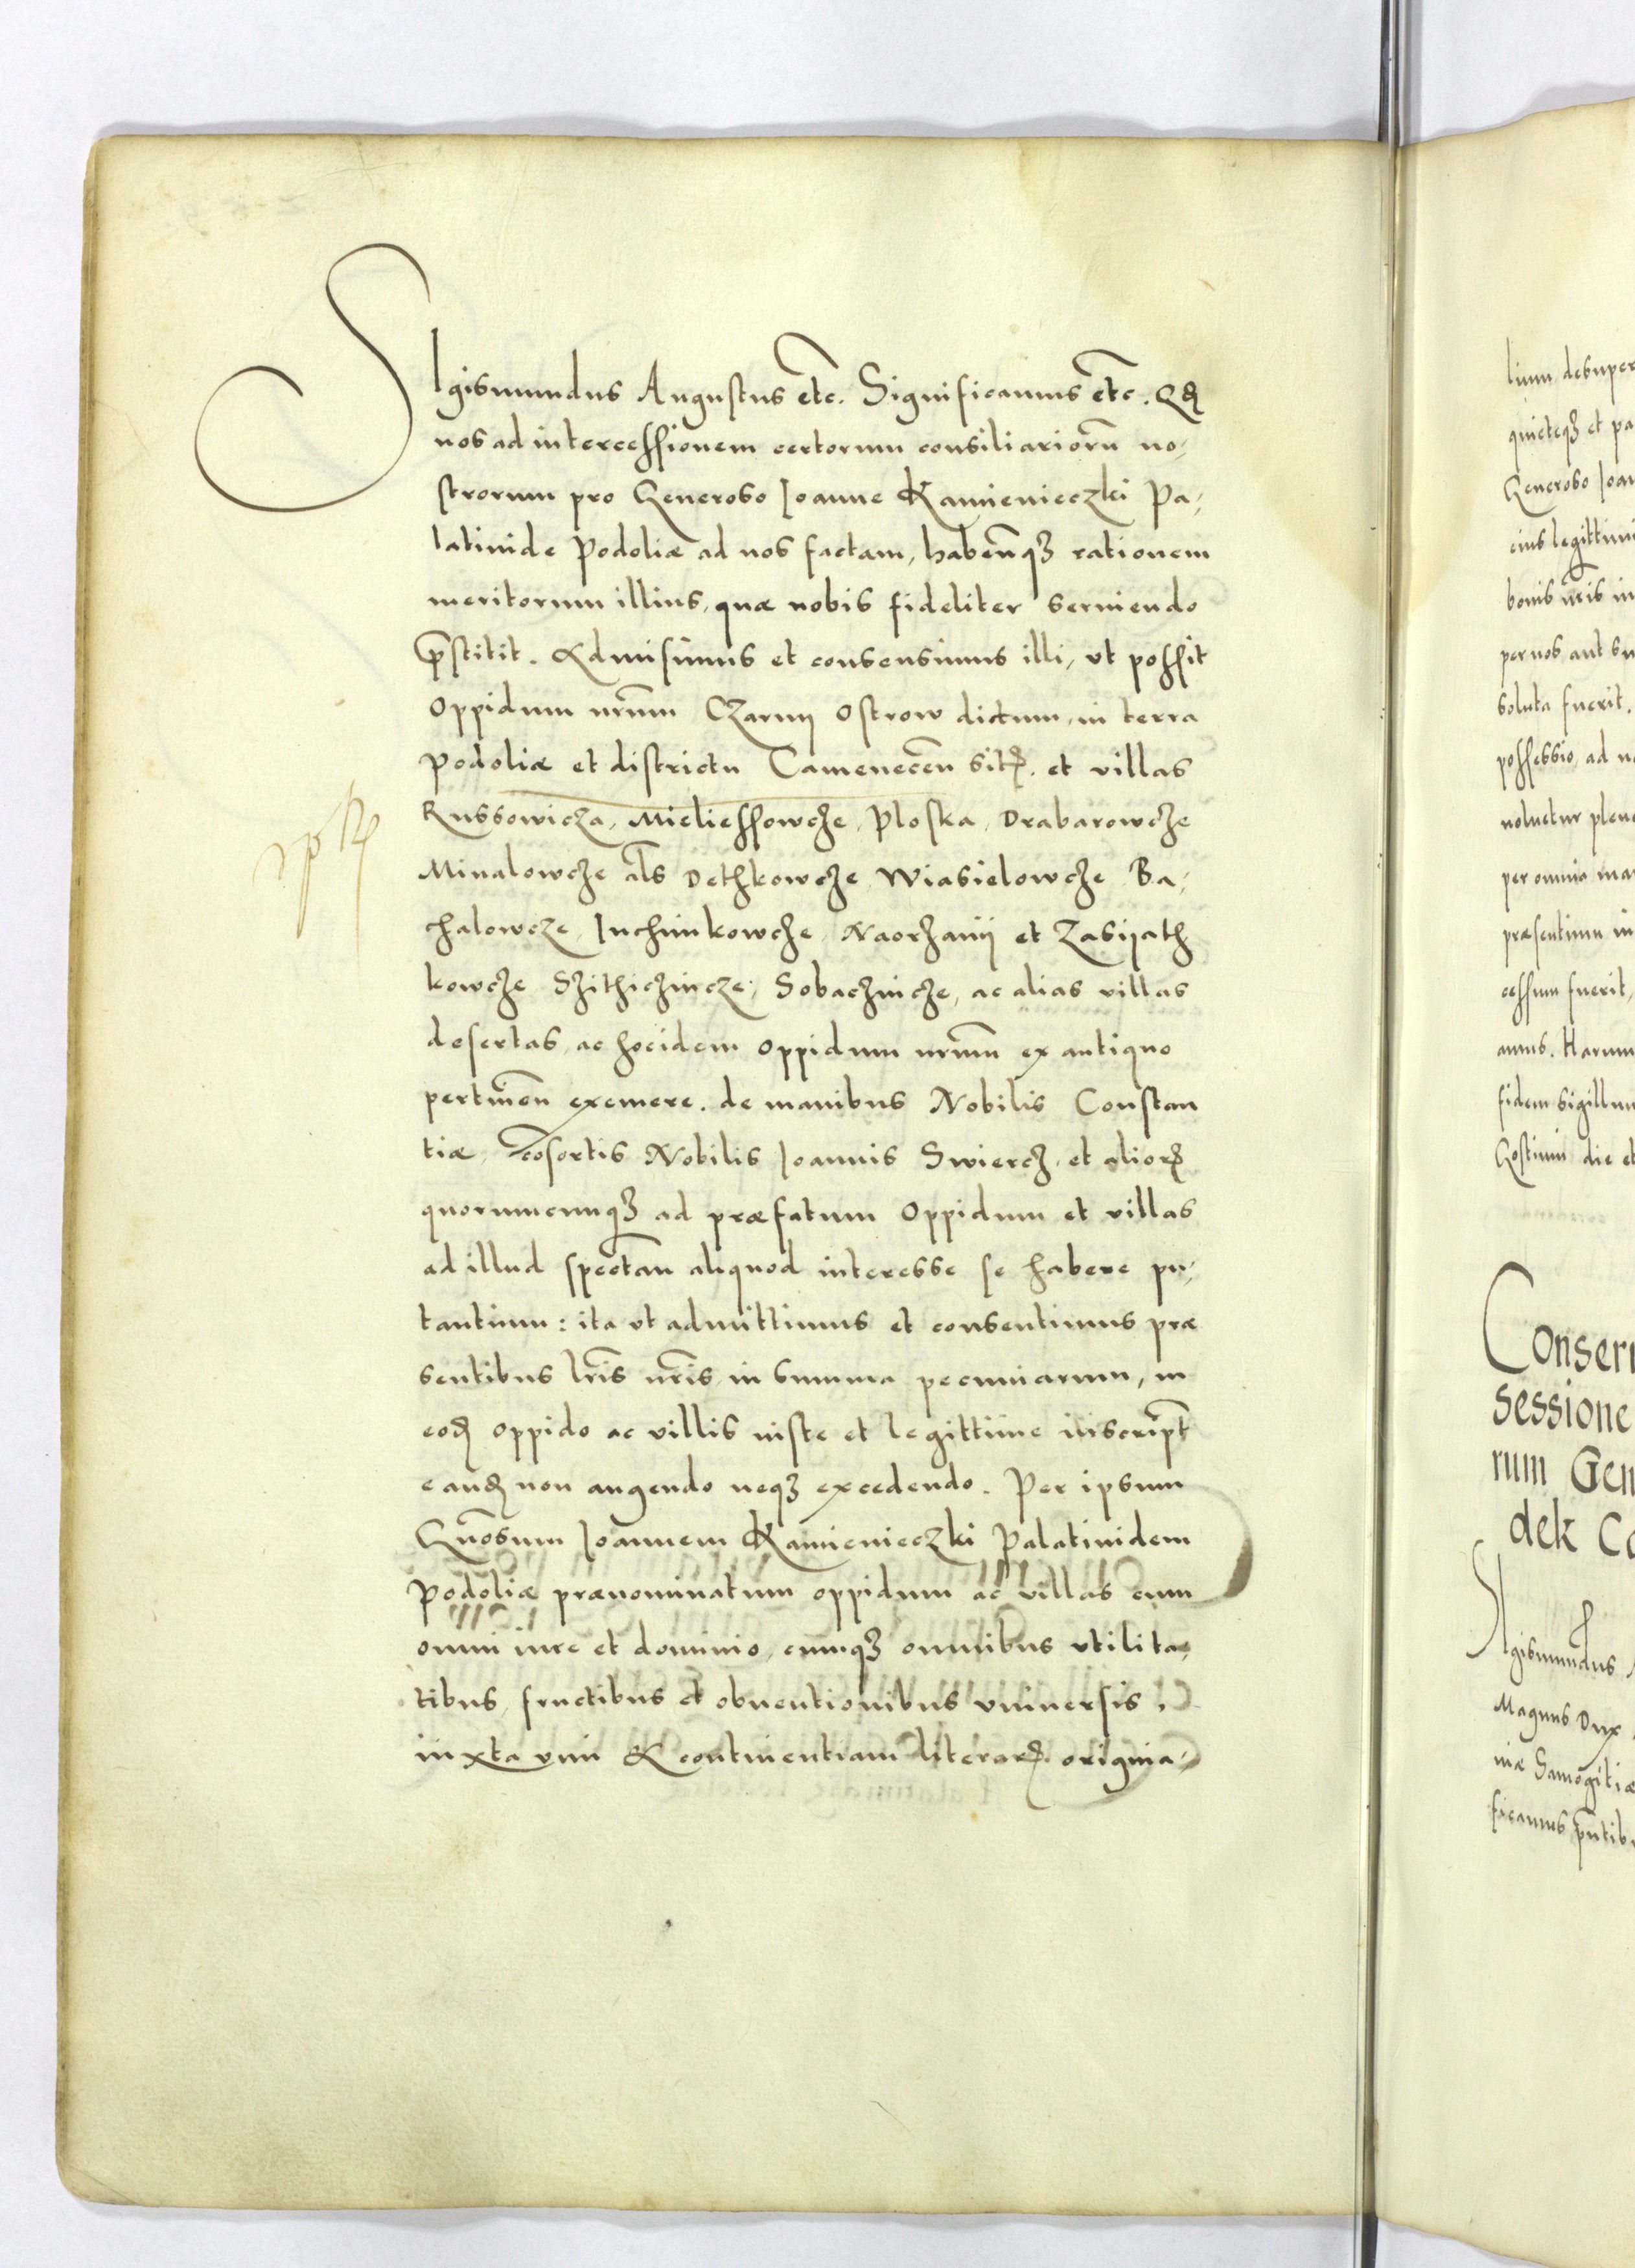 SIgismundus Augustus etc. Significamus etc. Qꝺ
nos ad intercessionem certorum consiliariorũ no-
strorum pro Generoso Ioanne Kamienieczki Pa-
latinide Podoliæ ad nos factam, habeñqꝫ rationem
meritorum illius, quæ nobis fideliter seruiendo
p̃stitit. Admisimus et consensimus illi, vt possit
oppidum nr̃um Czarny Ostrow dictum, in terra
Podoliæ et districtu Camenecen̄ sitꝭ. et villas
Russowicza, Mieliessowcze, Ploska, Drabarowcze
Minalowcze al̃s Dethkowcze, Wiasielowcze Ba-
chalowcze, Inchinkowcze, Naorzanij et Zasijath
kowcze Szithiczincze, Sobaczincze, ac alias villas
desertas, ac hocidem oppidum nr̃um ex antiquo
pertineñ exemere. de manibus Nobilis Constan
tiæ, cõsortis Nobilis Ioannis Swiercz, et aliorꝝ
quorumcunqꝫ ad præfatum oppidum et villas
ad illud spectañ aliquod interesse se habere pu-
tantium: ita vt admittimus et consentimus præ
sentibus lr̃is nr̃is, in summa pecuniarum, in
eoꝺ oppido ac villis iuste et legittime inscript̃
eanꝺ non augendo neqꝫ excedendo. Per ipsum
Gñosum Ioannem Kamienieczki Palatinidem
Podoliæ prænominatum oppidum ac villas cum
omni iure et dominio, cumqꝫ omnibus vtilita-
tibus, fructibus et obuentionibus vniuersis,
iuxta vim & continentiam literarꝝ origina-
lium desuper
quieteqꝫ et pa
Generoso Ioan
eius legittimi
bonis nr̃is in
per nos aut su
soluta fuerit.
possessio, ad n
uoluetur plen
per omnia ma
præsentium in
cessum fuerit,
amus. Harum
fidem sigillum
Gostinin die et
Conser
sessione
rum Gen
dek Ca
SIgismundus A
Magnus Dux
niæ Samogitiæ
ficamus p̃ntib